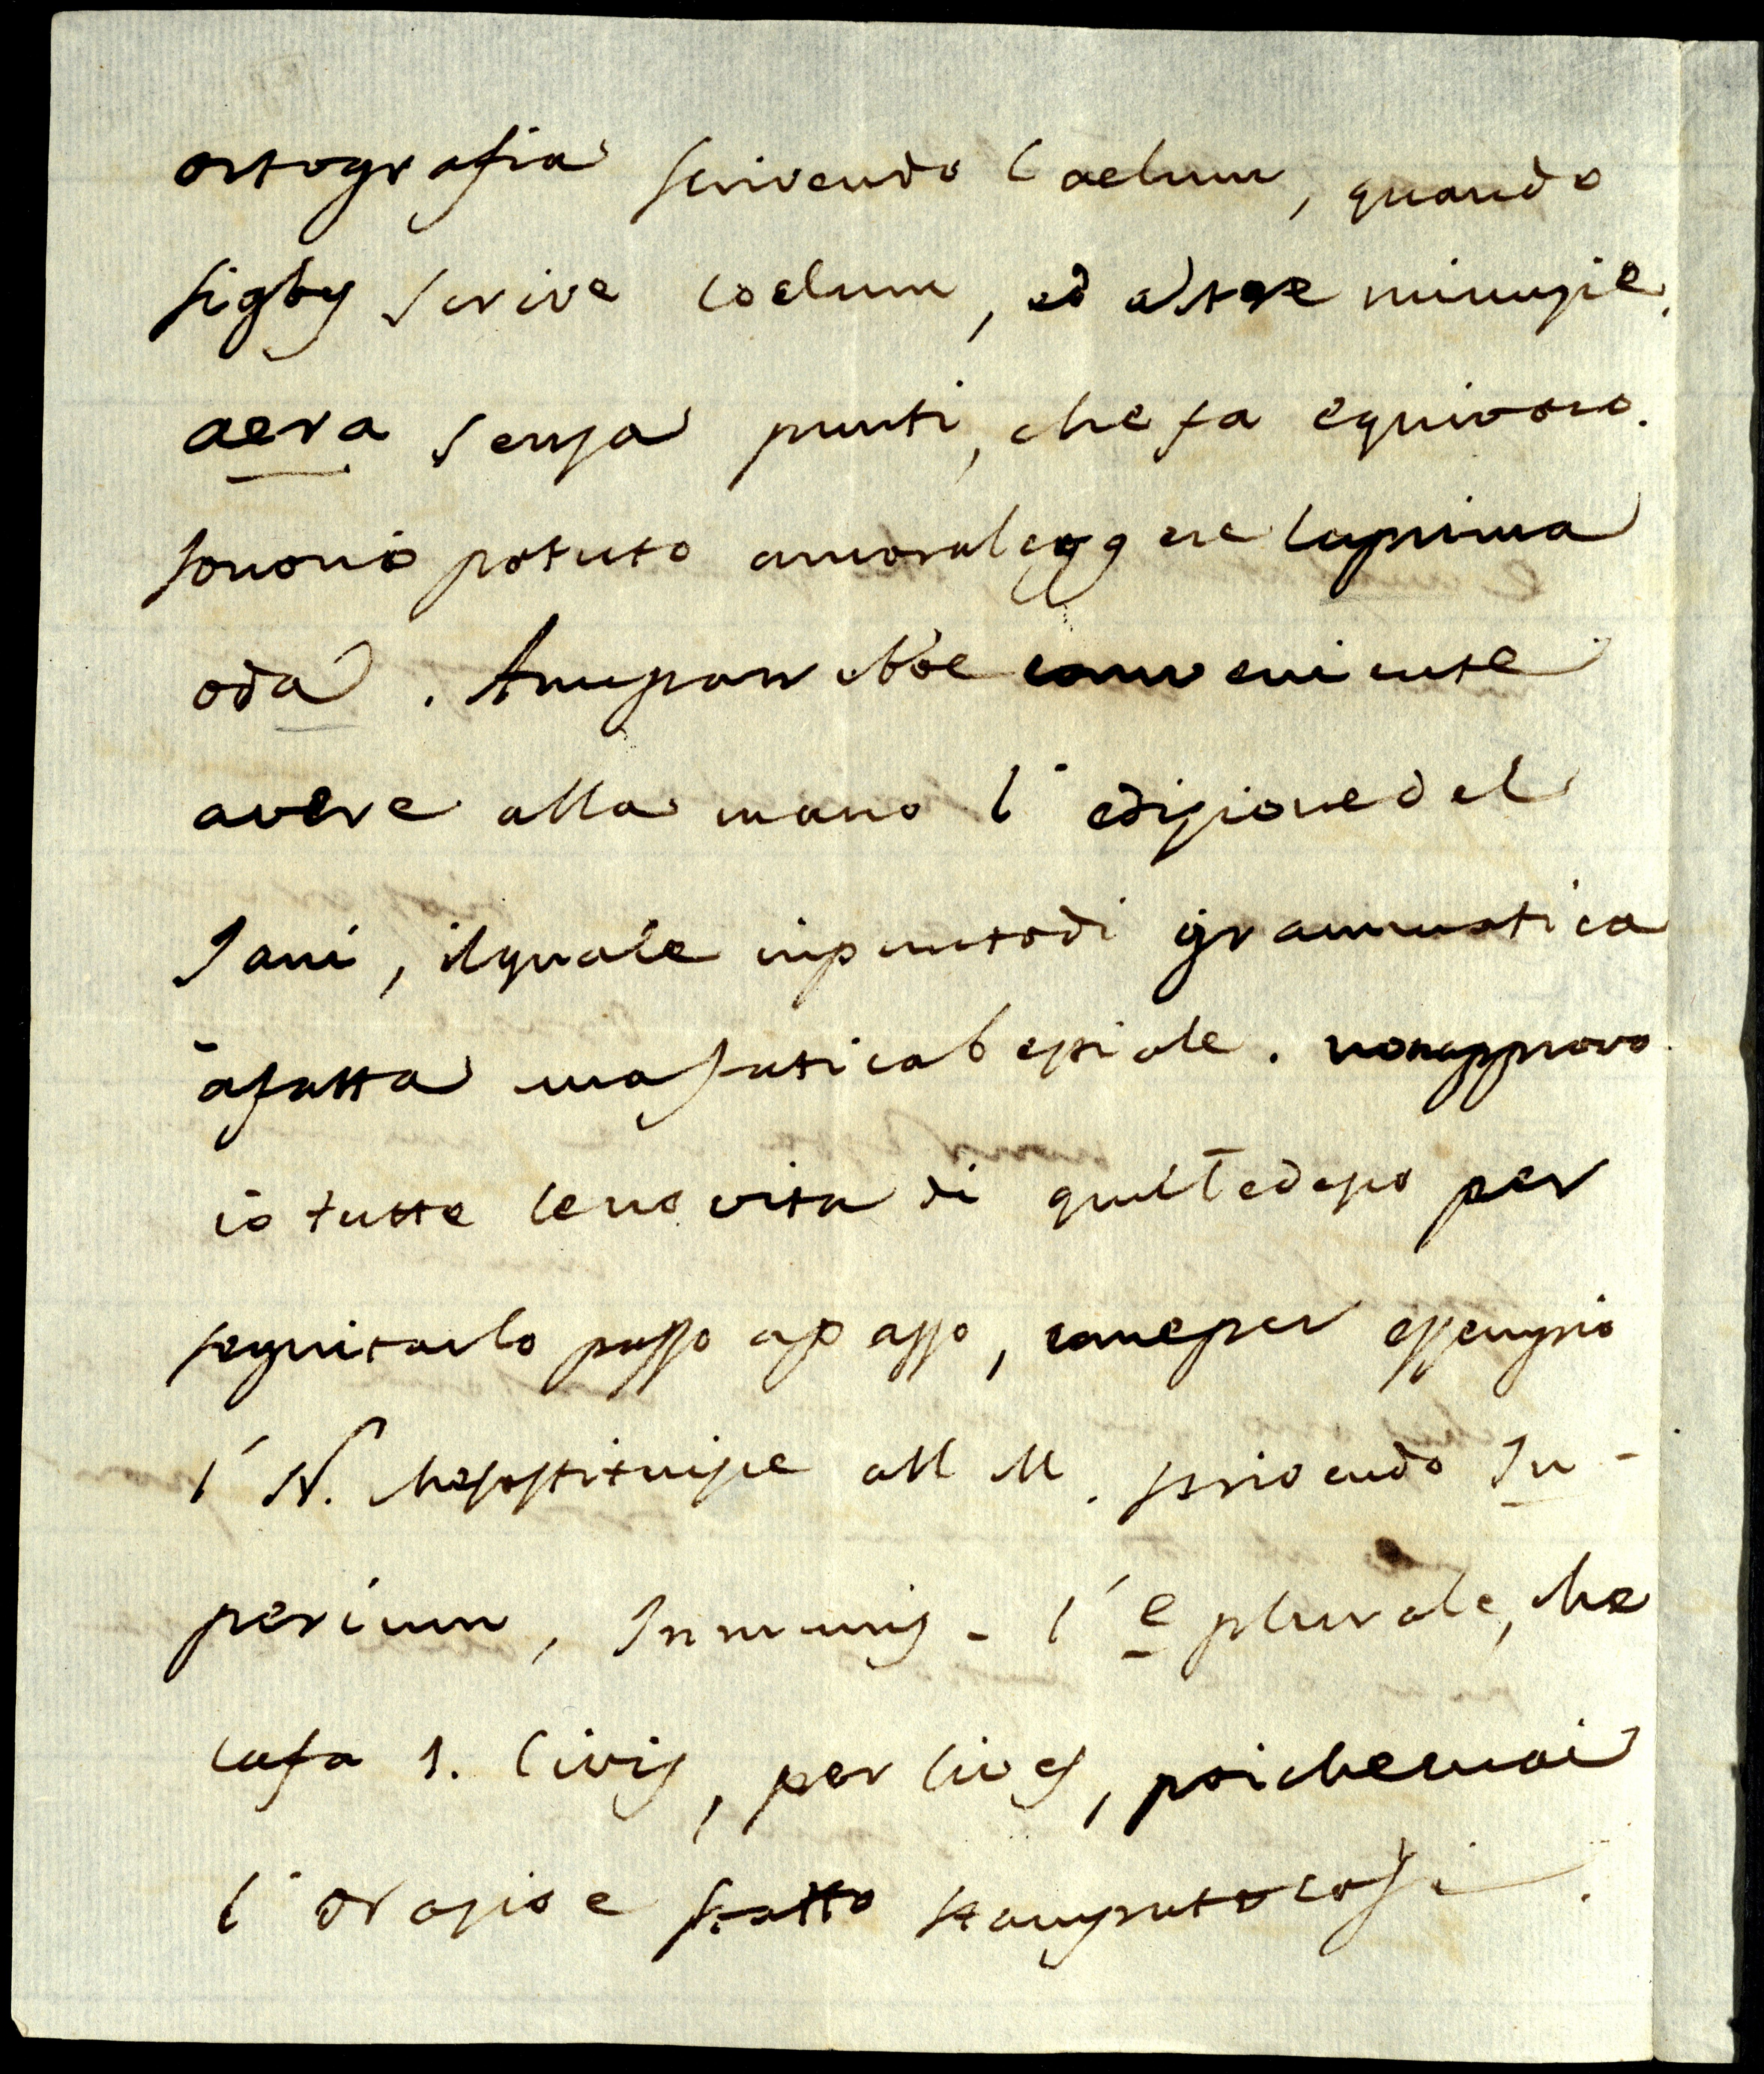 ortografia scrivendo Caelum, quando
scrive coelum, ed altre minuzie.
aera senza punti, che fa equivoco.
potuto ancora leggere la prima
oda. A me parrebbe conveniente
avere alla mano l'edizione del
Jani, il quale in punto di grammatica
à fatta una fatica bestiale. non approvo
io tutte le novita di per
seguitarlo passo a passo, come per essempio
l'N. che sostituisce all M. scrivendo In-
perium, Inmunis - l'e plurale, che
1. Civis, per Cives, poiche mai
l'Orazio e statto stampato così.